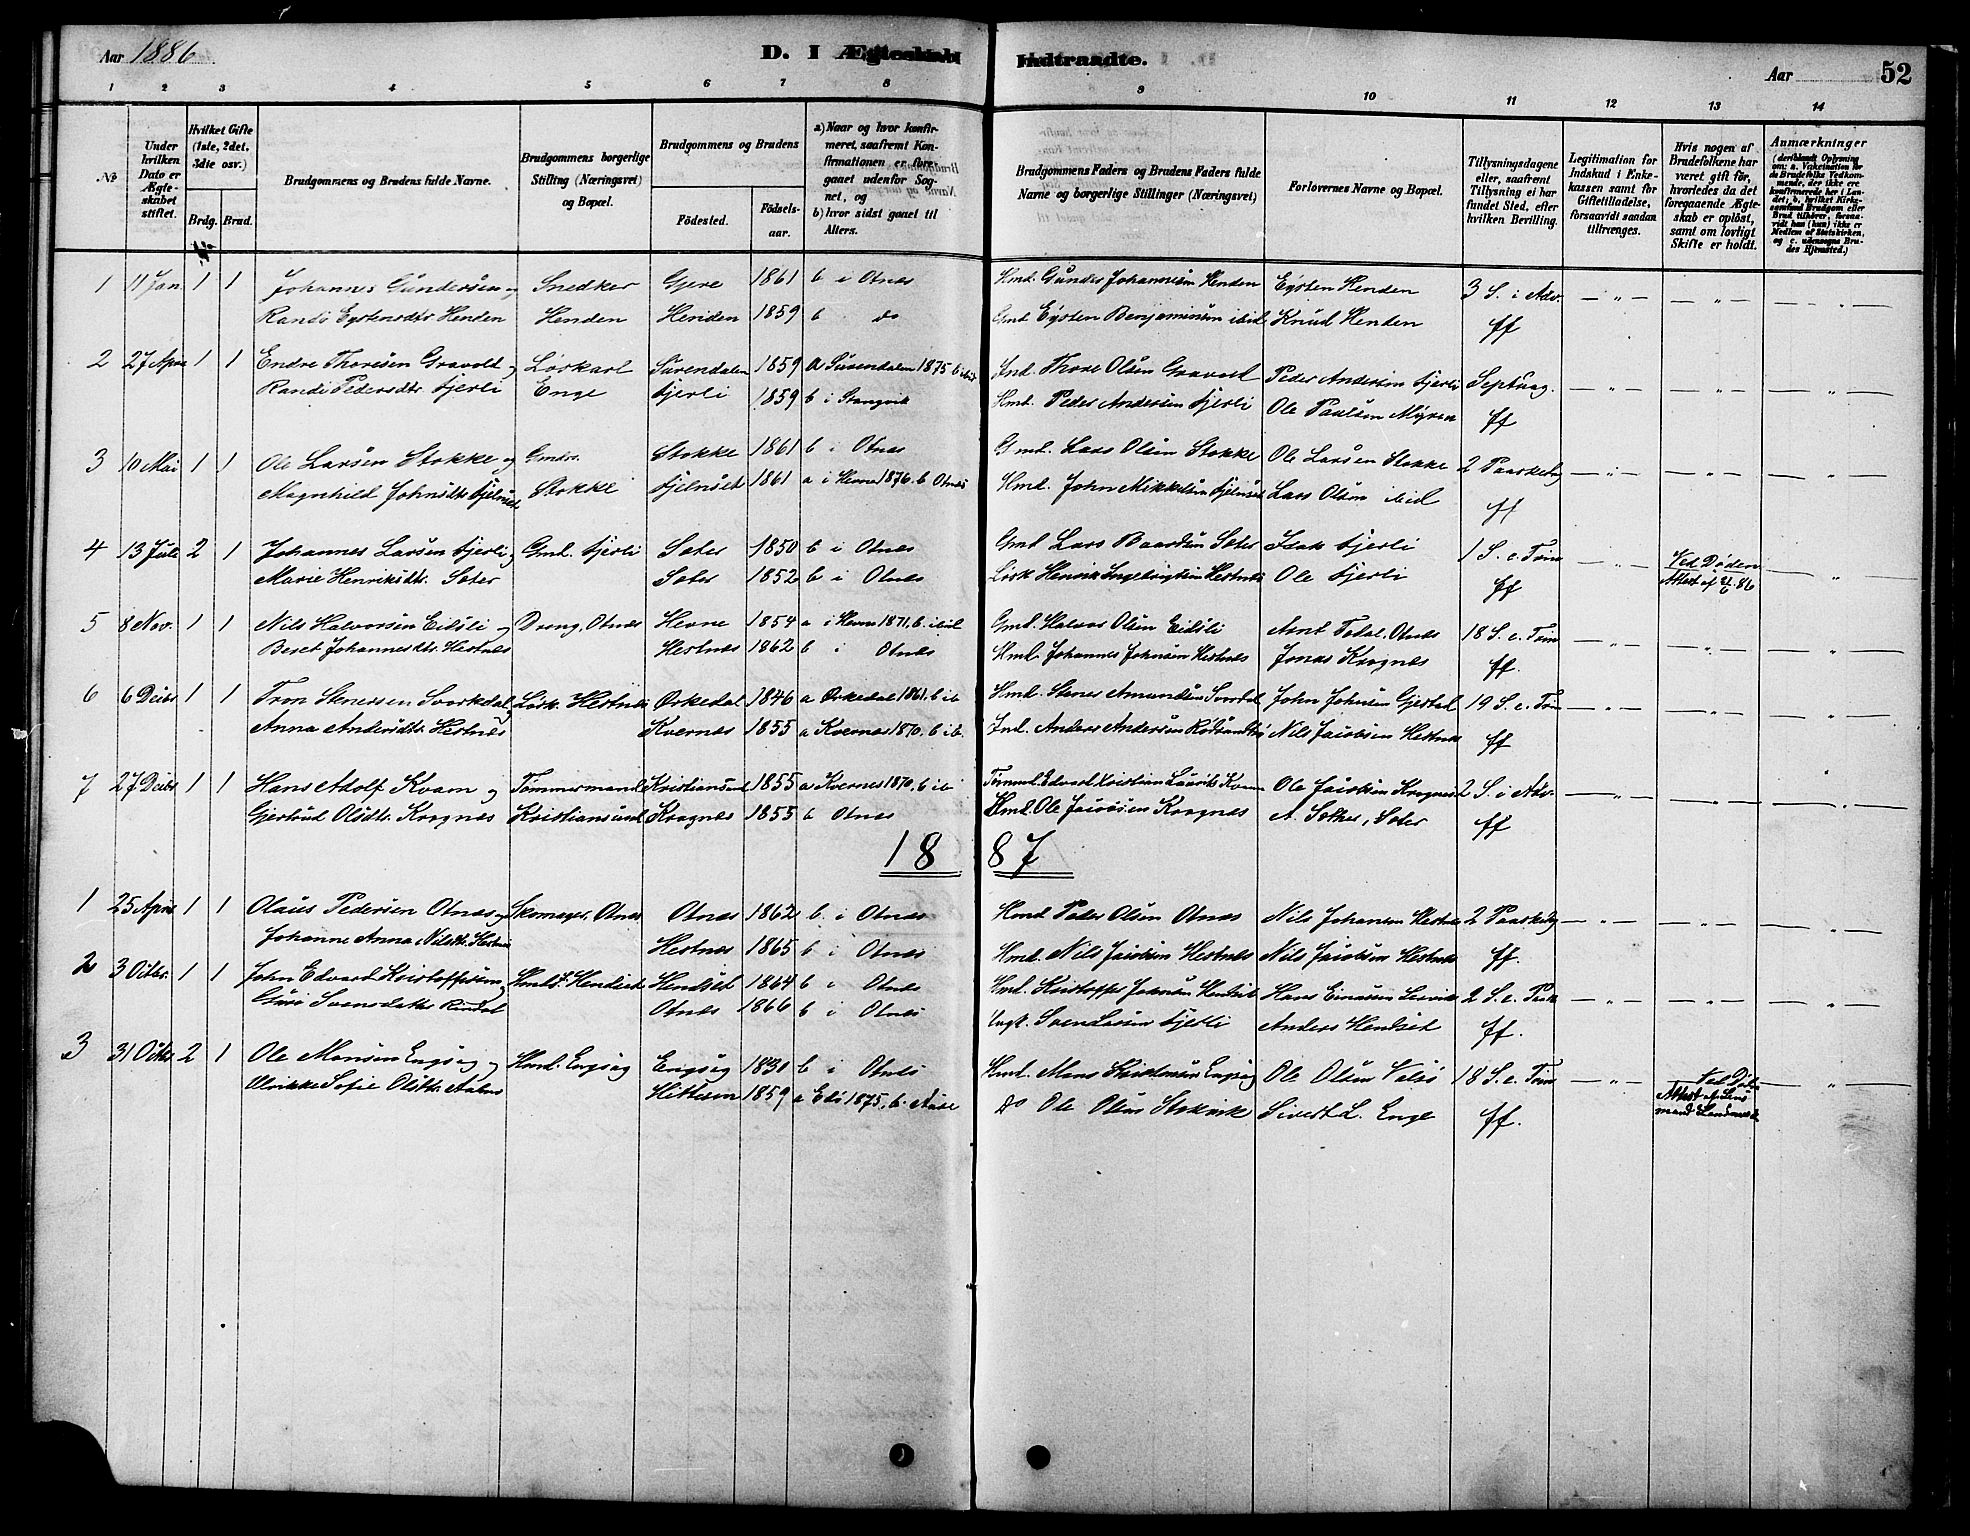 Aar 1886
D. I Ægteskab Indtraadte.
Aar 52
1 2 3 4 5 6 7 8 9 10 11 12 13 14
No
Under hvilken Dato er Ægteskabet stiftet.
Hvilket Gifte (1ste, 2det, 3die osv.)
Brdg. Brud.
Brudgommens og Brudens fulde Navne.
Brudgommens borgerlige Stilling (Næringsvei) og Bopæl.
Brudgommens og Brudens
Födested.
Födselsaar.
a) Naar og hvor konfirmeret, saafremt Konfirmationen er foregaaet udenfor Sognet, og
b) hvor sidst gaaet til Alters.
Brudgommens Faders og Brudens Faders fulde Navne og borgerlige Stillinger (Næringsvei)
Forlovernes Navne og Bopæl.
Tillysningsdagene eller, saafremt Tillysning ei har fundet Sted, efter hvilken Bevilling.
Legitimation for Indskud i Enkekassen samt for Giftetilladelse, forsaavidt saadan tiltrænges.
Hvis nogen af Brudefolkene har været gift för, hvorledes da det foregaaende Ægteskab er oplöst, samt om lovligt Skifte er holdt.
Anmærkninger
1 11 Jan. 1 1 Johannes Gundersen og Snedker Gjere 1861 b i Otnes Hmd. Gunder Johannesen Henden Eysten Henden 3 S. i Adv.
Randi Eystensdtr Henden Henden Henden 1859 b do Gmd Eysten Benjaminsen ibid Knud Henden ff
2 27 Apr 1 1 Endre Thoresen Gravold og Löskarl Surendalen 1859 a Surendalen 1875 b ibid Thore Olsen Gravold Peder Andersen Fjerli Septuag.
Randi Pedersdtr. Fjerli Enge Fjerli 1859 b i Stangvik Hmd. Peder Andersen Fjerli Ole Paulsen Myren ff
3 10 Mai 1 1 Ole Larsen Stokke og Gmdss. Stokke 1861 b i Otnes Gmd. Lars Olsen Stokke Ole Larsen Stokke 2 Paaskedag
Magnhild Johnsdtr Stokke 1861 a i Hevne 1876. b Otnes Hmd. John Mikkelsen Lars Olsen ibid ff
4 13 Juli 2 1 Johannes Larsen Fjerli og Gmd. Fjerli Sæter 1850 b i Otnes Gmd Lars Baardsen Sæter Isak Fjerli 1 S. e. Trin Ved Döden
Marie Henriksdtr. Sæter Sæter 1852 b i Otnes Henrik Ingebrigtsen Hestnes Ole Fjerli ff Attest af 21/6 86
5 8 Nov. 1 1 Nils Halvorsen Eidsli og Dreng, Otnes Hevne 1854 a i Hevne 1871. b. ibid Gmd. Halvor Olsen Eidsli Arnt Todal, Otnes 18 S. e. Trin
Beret Johannesdtr. Hestnes Hestnes 1862 b i Otnes Hmd. Johannes Johnsen Hestnes Jonas Krognes ff.
6 6 Decbr 1 1 Tron Stenersen Svorkdal Lösk. Hestnes Orkedal 1846 a Orkedal 1861. b ib Hmd. Stener Amundsen John Johnsen Gjerstad 19 S. e. Trin
Anna Andersdtr. Hestnes Kvernes 1855 a Kvernes 1870. b ib. Ind. Anders Andersen Nils Jacobsen Hestnes ff
7 27 Decbr 1 1 Hans Adolf Kvam og Tömmermand Kristiansund 1855 a Kvernes 1870. b ib Tömmerm. Edvard Kristian Lauritz Kvam Ole Jacobsen Krognes 2 S. i Adv.
Gjertrud Olsdtr. Krognes Kristiansund Krognes 1855 b Otnes Hmd. Ole Jacobsen Krognes A. Sæther, Sæter ff
1887
1 25 April 1 1 Olaus Pedersen Otnes og Skomager, Otnes Otnes 1862 b. i Otnes Hmd Peder Olsen Otnes Nils Johansen Hestnes 2 Paaskedag
Johanne Anna Nilsdtr. Hestnes Hestnes 1865 b i Otnes Hmd. Nils Jacobsen Hestnes Nils Jacobsen Hestnes ff.
2 3 Octbr. 1 1 John Edvard Kristoffersen og Hendset Hendset 1864 b i Otnes Hmd. Kristoffer Johnsen Hendset Hans Einarsen 2 S. e.
Guro Svensdatter Rindal Otnes 1866 b i Otnes Sven Larsen Fjerli Anders Hendset ff.
3 31 Octbr 2 1 Ole Monsen Engsig og Hmd. Engsig Engsig 1830 b i Otnes Hmd. Mons Engsig Ole Olsen Valsö 18 S. e. Trin Ved Död.
Ulrikke Sofie Olsdtr. Hitteren 1859 a Edö 1875, b. Aure do Ole Olsen Sivert L. Enge ff. Attest af Lensmand